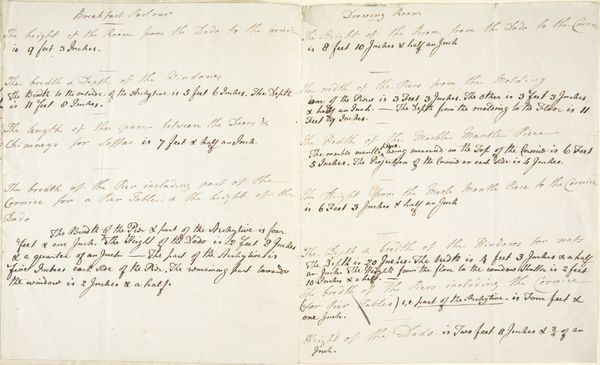 Breakfast Parlour
The height of the Room from the Dado to the Cornice
is 9 feet 3 Inches.
The bredth & Depth of the Windows
The Bredth to the outside of the Architive is 5 feet 6 Inches. The Depth
is 11 feet 8 Inches.
The length of the space between the Doors &
Chimneys for Soffas. is 7 feet & half an Inch.
The breadth of the Pier including part of the
Cornice for a Pier Table, & the height of the
Dado
The Bredth of the Pier & part of the Archytive is four
feet & one Inch. The Height of the Dado is 2 feet 8 Inches
& a quarter of an Inch — The part of the Archytive is
five Inches each side of the Pier. The remaining part towards
the window is 2 Inches & a half.
Drawing Room
The Height of the Room from the Dado to the Cornice
is 8 feet 10 Inches & half an Inch
The width of the Piers from the Molding
one of the Piers is 3 Feet 3 Inches. The other is 3 feet 3 Inches
& half an Inch. — The Depth from the molding to the Floor is 11
Feet Inches.
The Width of the Marble Mantle Piece
The marble mantle piece being measured on the Top of the Cornice is 6 Feet
5 Inches. The Projection of the Cornice on each side is 4 Inches.
The Height from the Marle Mantle Piece to the Cornice
is 6 Feet 3 Inches & half an Inch
The Depth & bredth of the Windows for
The Width is 20 Inches. The bredth is 4 feet 3 Inches & a half
an Inch. The Height from the floor to the window Shutter is 2 feet
10 Inches & a half.
The bredth of the Piers including the Cornice
(for Pier Tables) i,e part of the Archytive. is Four feet &
one Inch.
Height of the Dado. is Two feet 8 Inches & ¾ of an
Inch.